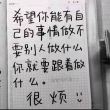 希望你能有自
己的事情做不
要别人做什么
你就要跟着做
什么。
很烦